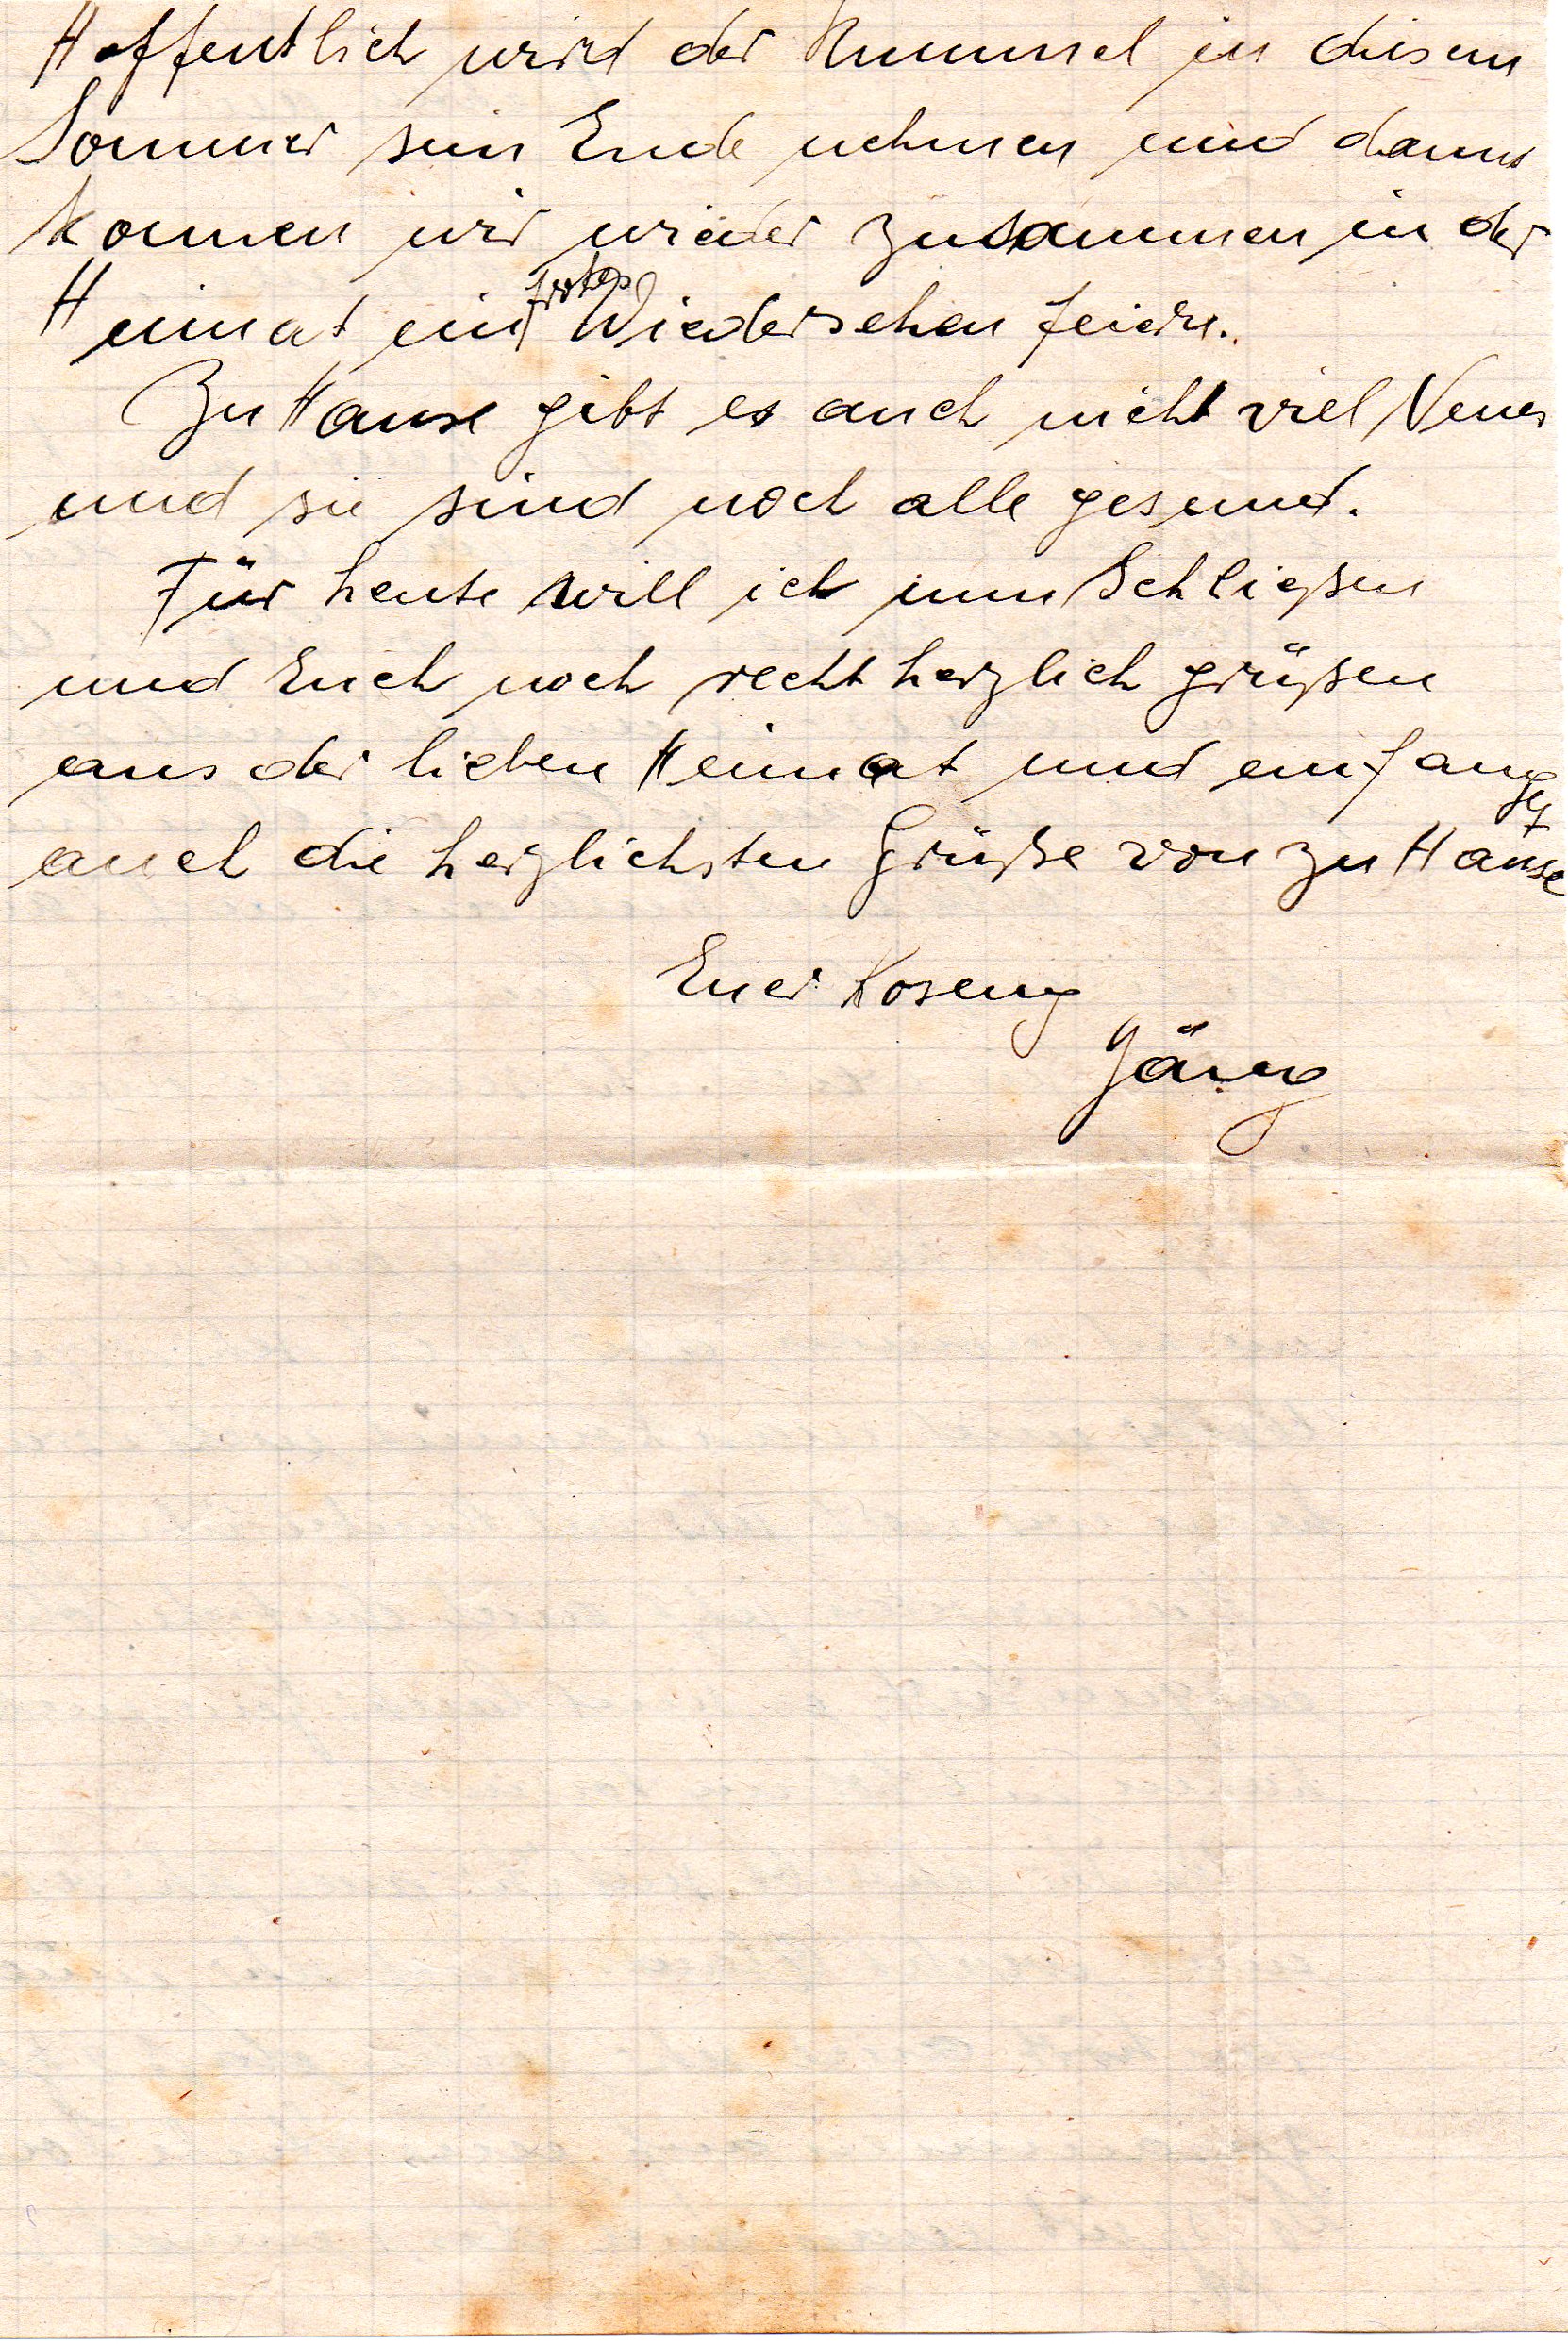 Hoffentlich wird der Rummel in diesem
Sommer sein Ende nehmen und dann
können wir wieder zusammen in der
frohes
Heimat ein Wiedersehen feiern.
Zu Hause gibt es auch nicht viel Neues
und sie sind noch alle gesund.
Für heute will ich nun schließen
und Euch noch recht herzlich grüßen
aus der lieben Heimat und emfanget
auch die herzlichsten Grüße von zu Hause
Euer Koseng
Järg